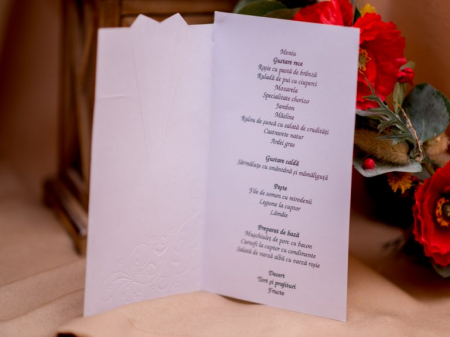 Meniu
Gustare rece
Roșie cu pastă de brânză
Ruladă de pui cu ciuperci
Mozarela
Specialitate chorizo
Jambon
Măsline
Rulou de șuncă cu salată de crudități
Cașcaval natur
Ardei gras
Gustare caldă
Sărmăluțe cu smântână și mămăliguță
Pește
File de somon cu mirodenii
Legume la cuptor
Lămâie
Preparat de bază
Mușchiuleț de porc cu bacon
Cartofi la cuptor cu condimente
Salată de varză albă cu varză roșie
Desert
Tort și prăjituri
Fructe